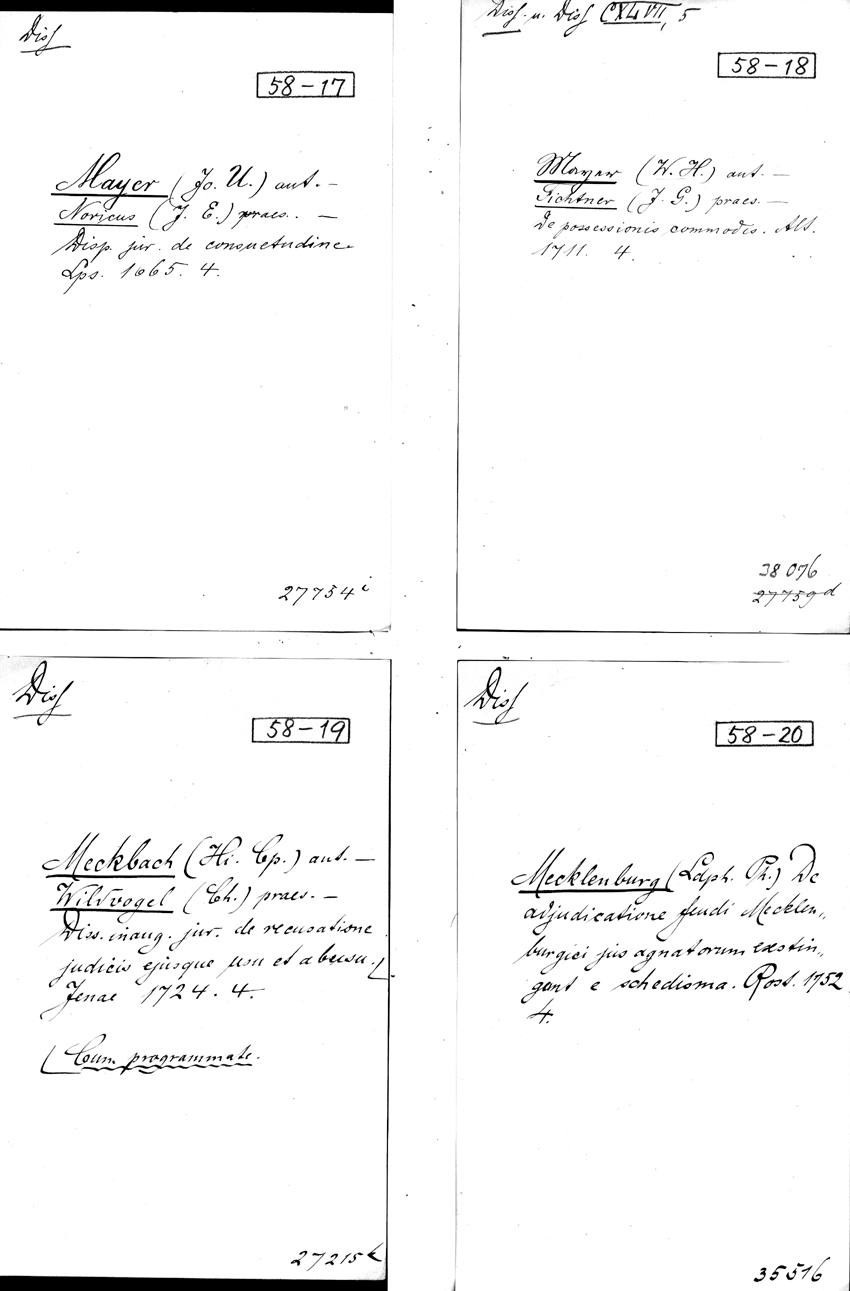 Diss
58-17
Mayer (Jo. U.) aut. —
Noricus (J. E.) praes. —
Disp. jur. de consuetudine.
Lps. 1665. 4.
27754 i
Diss. u. Diss CXLVII, 5
58-18
Mayer (W. H.) aut. —
Fichtner (J. G.) praes. —
De possessionis commodis. Alt.
1711. 4.
38 076
27759 d
Diss
58-19
Meckbach (Hi. Cp.) aut. —
Wildvogel (Ch.) praes. —
Diss. inaug. jur. de recusatione
judicis ejusque usu et abusu.
Jenae 1724. 4.
Cum programmate.
27215 k
Diss
58-20
Mecklenburg (Ldph. Th.) De
adjudicatione feudi Mecklen„
burgici jus agnatorum exstin„
gent e schedisma. Rost. 1752
4.
35516